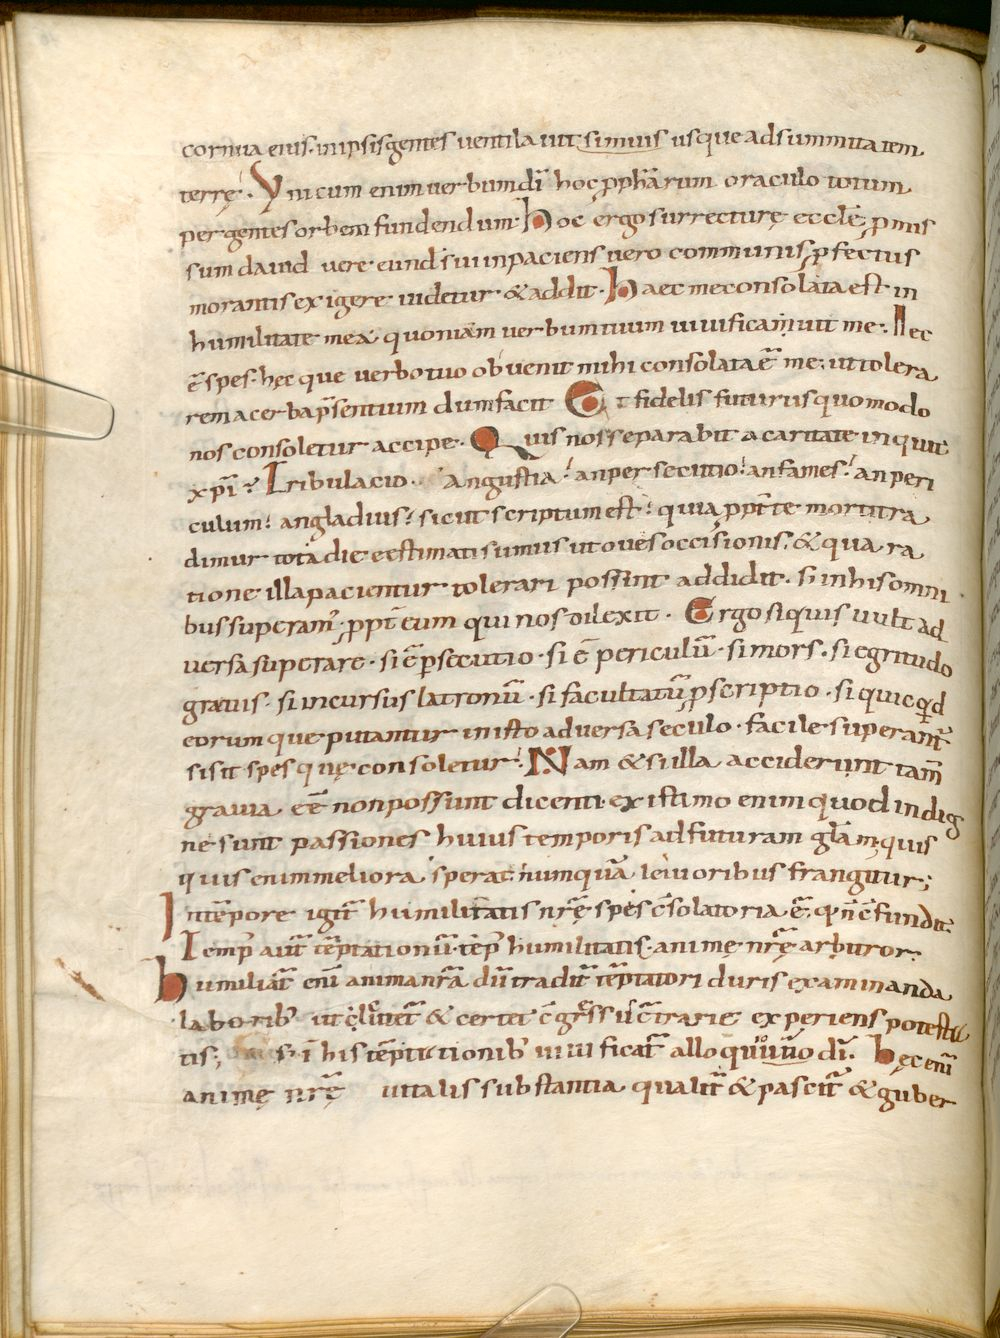 cornua eius. in ipsis gentes uentilauit simus usque ad summitatem
terrę. Vnicum enim uerbum dī hoc pphārum oraculo totum
per gentes orbem fundendum. hoc ergo surrecturę ecclē pmis
sum dauid uere eundū sui inpaciens uero communis pfectus
morantis exigere uidetur. & addit. haec me consolata est in
humilitate mea quoniam uerbum tuum uiuificauit me. Nec
ē spes. hęc que uerbo tuo obuenit mihi consolata ē me. ut tolera
rem acerba p̄sentium dum facit Et fidelis futurus quomodo
nos consoletur accipe. Quis nos separabit a caritate inquit
xpī? Tribulacio. Angustia? an persecutio? an fames? an peri
culum? an gladius? sicut scriptum est? quia ppt te mortifra
dimur tota die eestimati sumus ut oues occisionis. & qua ra
tione illa pacientur tolerari possint addidit. si in his omni
bus superam̄. ppt eum qui nos dilexit. Ergo si quis uult ad
uersa superare. si ē psecutio. si ē periculū. si mors. si egritudo
grauis. si incursus latronū. si facultatū pscriptio. si quicqd
eorum que putantur in isto aduersa seculo. facile superant̄
si sit spes quę consoletur. Nam & si illa acciderunt tam̄
grauia eē non possunt dicenti. existimo enim quod indig
ne sunt passiones huius temporis ad futuram glām. quis
quis enim meliora sperat. numquā leuioribus frangitur;
In tēpore igit̄ humilitatis nr̄ę spes c̄solatoria ē. q̄ n̄ c̄fundit
Temp̄ aut̄ tēptationū. tēp̄ humilitatis. animę nr̄ę arbitror
humiliat̄ enī anima nr̄a dū tradit̄ tēptatori duris examinanda
laborib; ut c̄luctet̄ & certet c̄gress c̄trarię experiens potesta
tis; s; ī his tēptationib; uiuificat̄ alloquio dī. hęc enī
animę nr̄ę uitalis substantia qua alit̄ & pascit̄ & guber